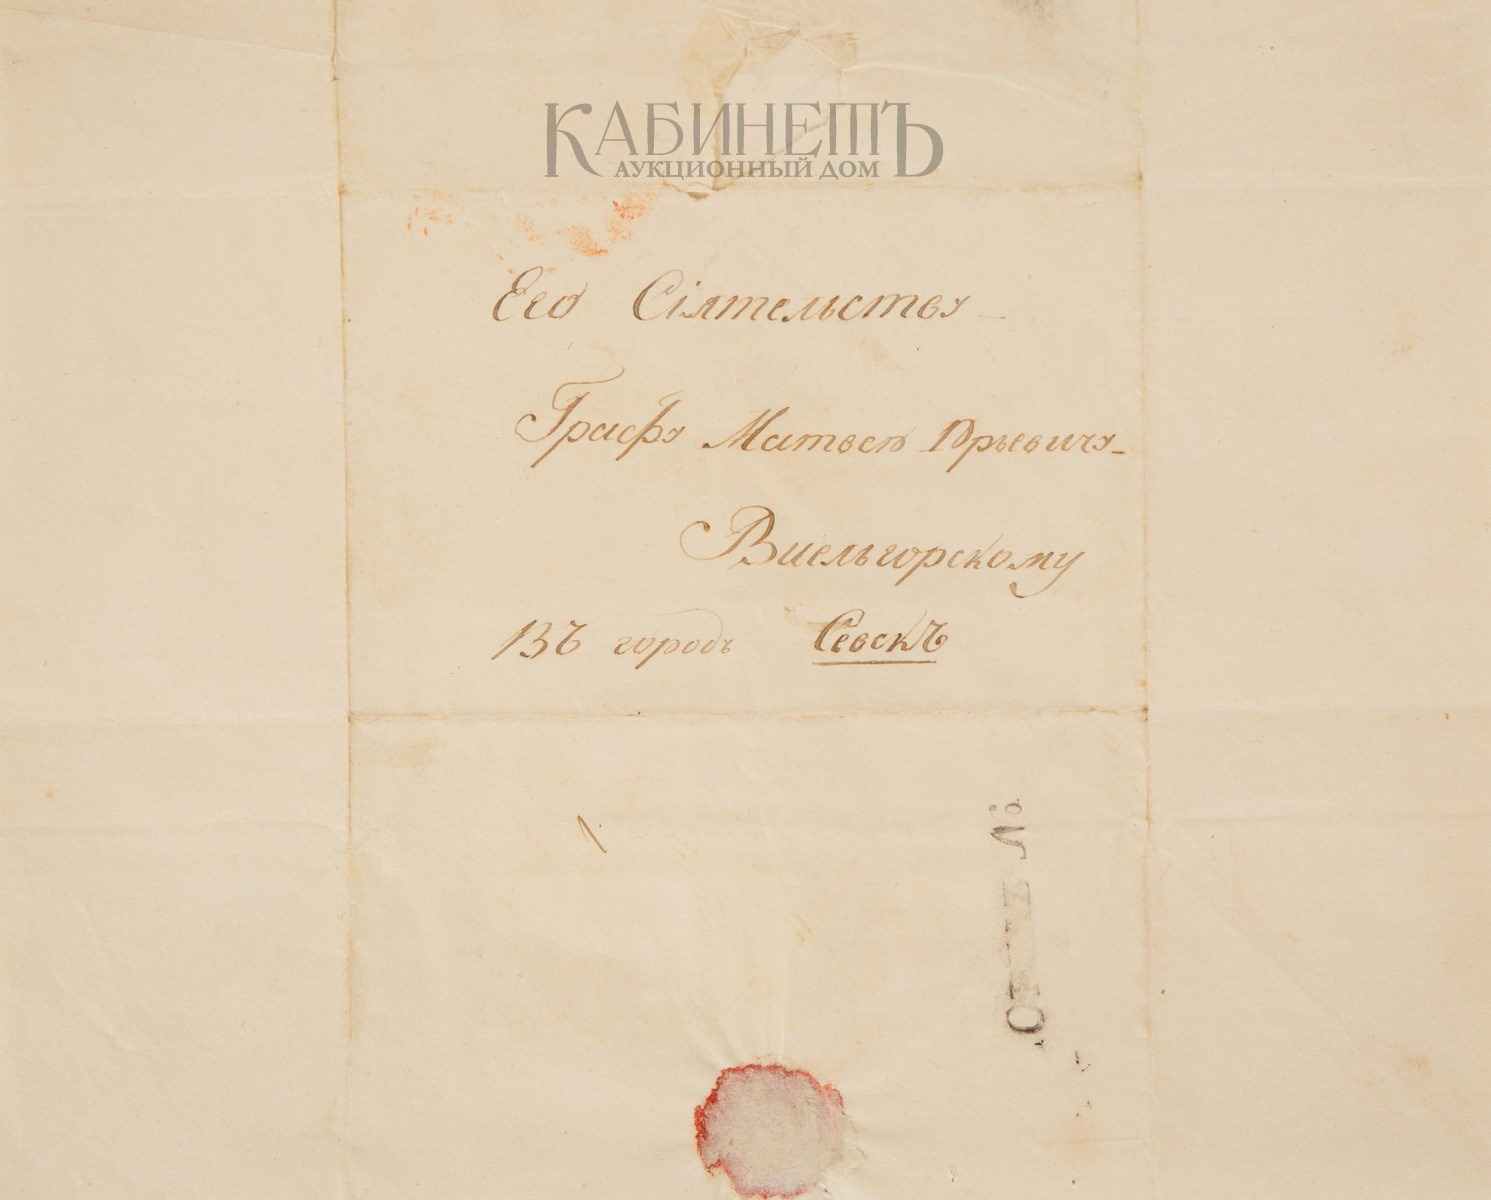 КАБИНЕТЪ
АУКЦИОННЫЙ ДОМ
Его Сіятельству
Графу Матвею Юрьевичу
Виельгорскому
Въ городъ Севскъ